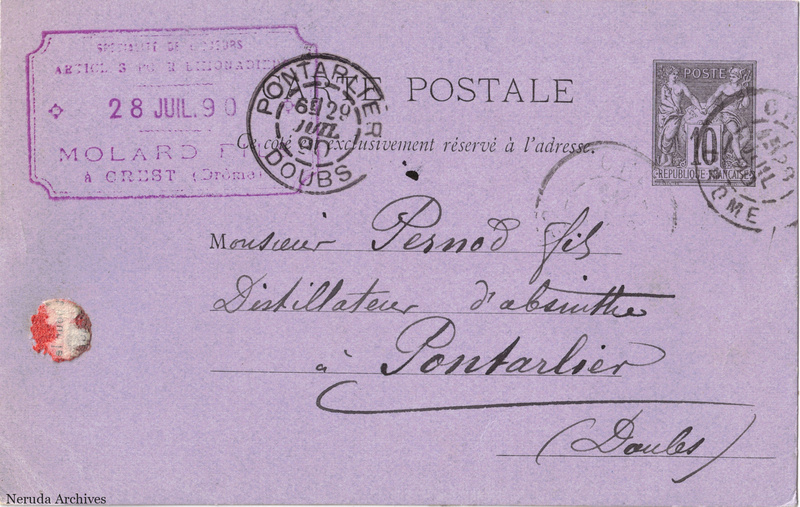 SPÉCIALITÉ DE
ARTICLES POUR LIMONADIERS
28 JUIL. 90
MOLARD
A CREST (Drôme)
PONTARLIER
6E 29
JUIL
90
DOUBS
POSTALE
Ce côté exclusivement réservé à l'adresse.
POSTE
10
RÉPUBLIQUE FRANÇAISE
JUIL
Monsieur Pernod fils
Distillateur d'absinthe
à Pontarlier
(Doubs)
Neruda Archives